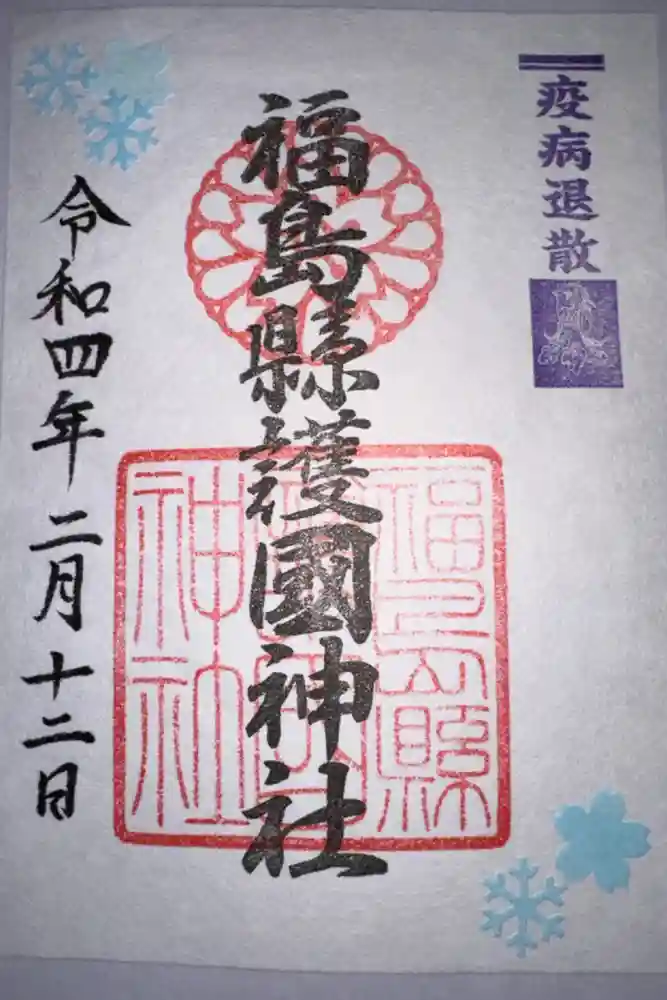 疫病退散
福島縣護國神社
福島縣
護國
神社
令和四年二月十二日